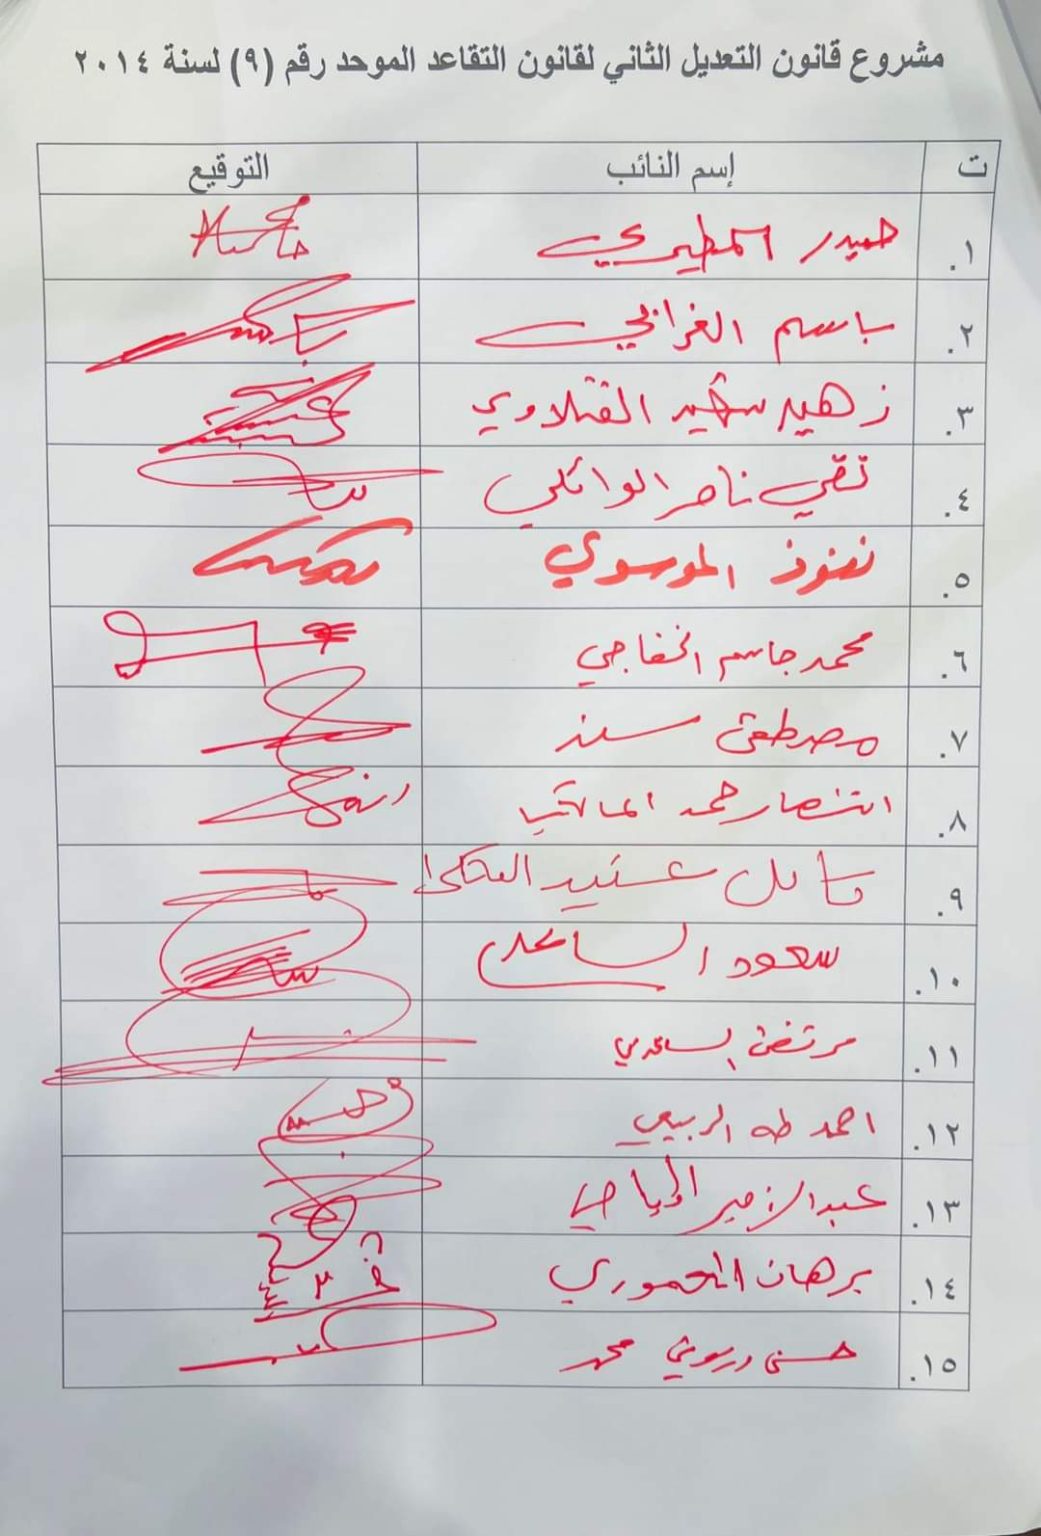 مشروع قانون التعديل الثاني لقانون التقاعد الموحد رقم (٩) لسنة ٢٠١٤
ت إسم النائب التوقيع
.١ حيدر المطيري
.٢ باسم الغرابي
.٣ زهير شهيد الفتلاوي
.٤ تقي ناصر الوائلي
.٥ نفوذ الموسوي
.٦ محمد جاسم الخفاجي
.٧ مصطفى سند
.٨ انتصار حمد
.٩
.١٠ سعود الساعدي
.١١ مرتضى الساعدي
.١٢ احمد طه الربيعي
.١٣ عبدالامير
.١٤ برهان المعموري
.١٥ محمد